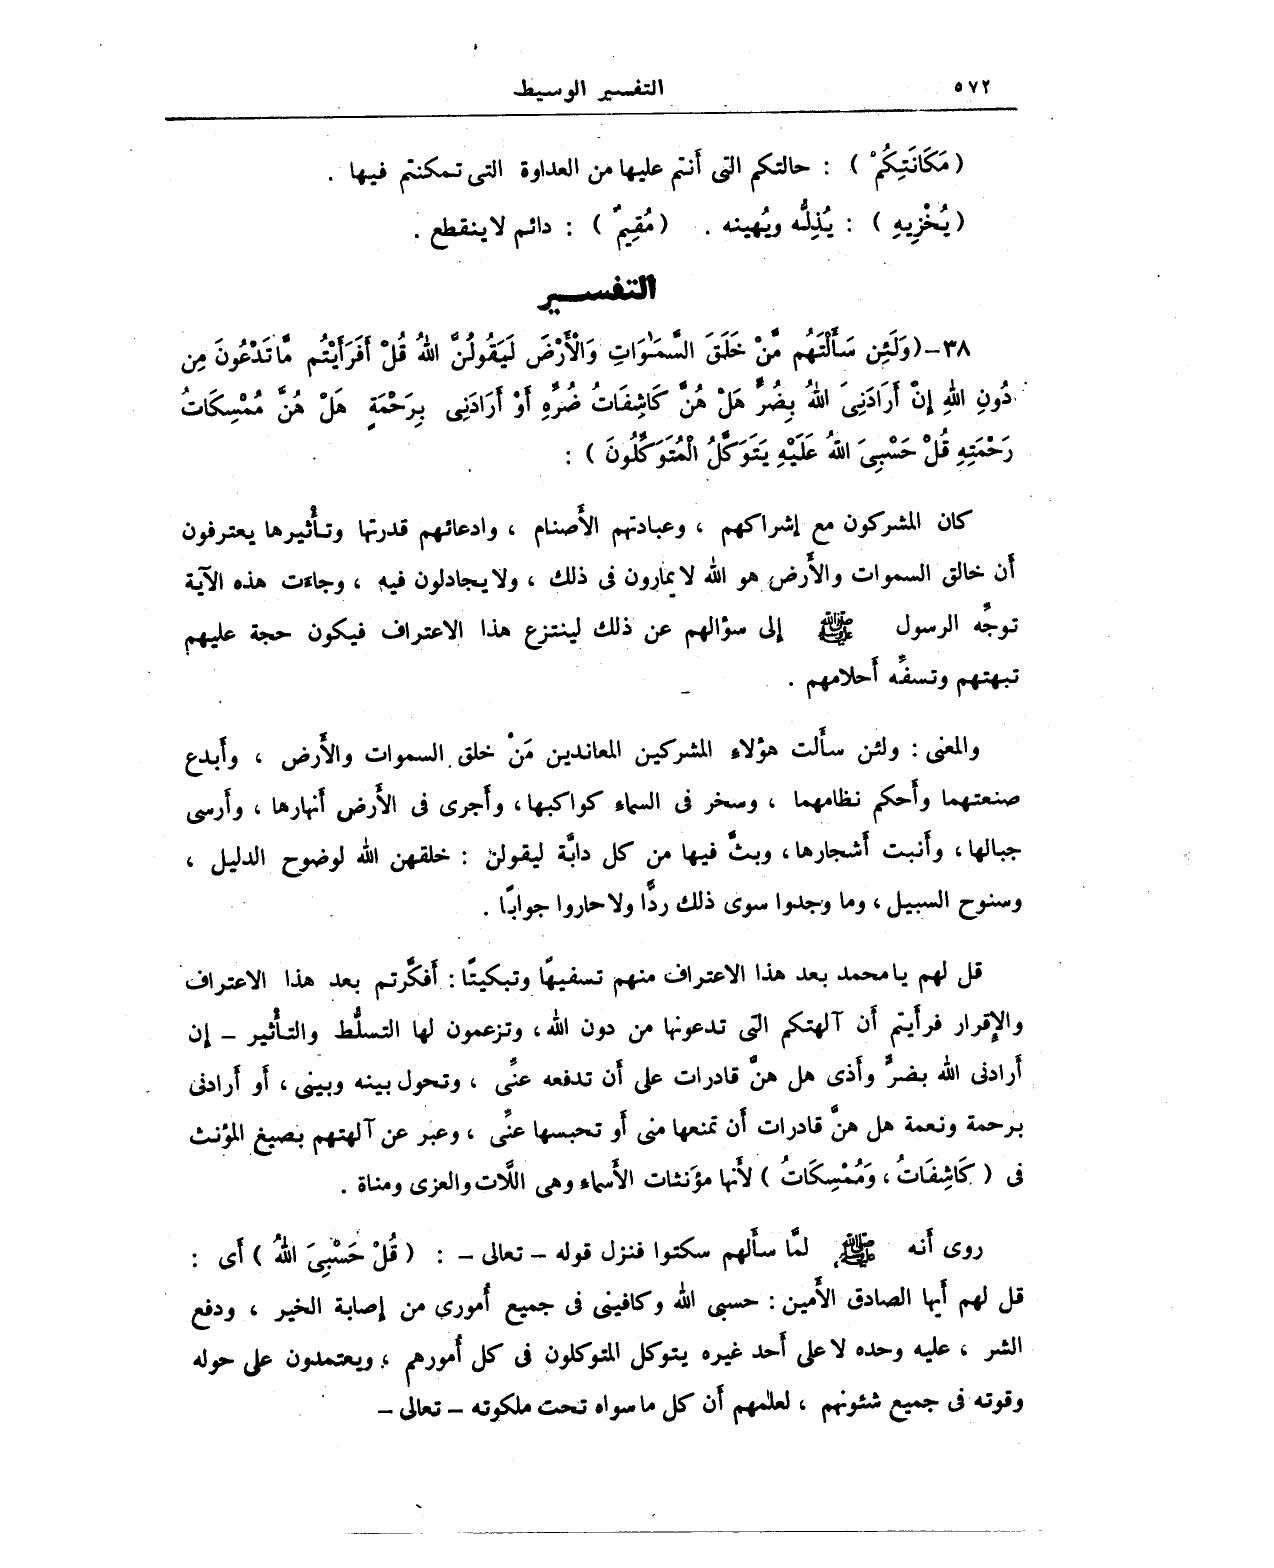 ٥٧٢
التفسير الوسيط
( مَكَانَتِكُمْ ) : حالتكم التى أَنتم عليها من العداوة التى تمكنتم فيها .
( يُخْزِيهِ ) : يُذِلُّه ويُهينه . ( مُقِيمٌ ) : دائم لا ينقطع .
التفســـير
٣٨-( وَلَئِن سَأَلْتَهُم مَّنْ خَلَقَ السَّمَـٰوَاتِ وَالْأَرْضَ لَيَقُولُنَّ اللهُ قُلْ أَفَرَأَيْتُم مَّا تَدْعُونَ مِن
دُونِ اللهِ إِنْ أَرَادَنِىَ اللهُ بِضُرٍّ هَلْ هُنَّ كَاشِفَاتُ ضُرِّهِ أَوْ أَرَادَنِى بِرَحْمَةٍ هَلْ هُنَّ مُمْسِكَاتُ
رَحْمَتِهِ قُلْ حَسْبِىَ اللهُ عَلَيْهِ يَتَوَكَّلُ الْمُتَوَكِّلُونَ ) :
كان المشركون مع إشراكهم ، وعبادتهم الأَصنام ، وادعائهم قدرتها وتأْثيرها يعترفون
أَن خالق السموات والأَرض هو الله لا يمارون فى ذلك ، ولا يجادلون فيه ، وجاءَت هذه الآية
توجِّه الرسول ﷺ إلى سؤالهم عن ذلك لينتزع هذا الاعتراف فيكون حجة عليهم
تبهتهم وتسفِّه أَحلامهم .
والمعنى : ولئن سأَلت هؤلاءِ المشركين المعاندين مَنْ خلق السموات والأَرض ، وأَبدع
صنعتهما وأَحكم نظامهما ، وسخر فى السماءِ كواكبها ، وأَجرى فى الأَرض أَنهارها ، وأَرسى
جبالها ، وأَنبت أَشجارها ، وبثَّ فيها من كل دابَّة ليقولن : خلقهن الله لوضوح الدليل ،
وسنوح السبيل ، وما وجدوا سوى ذلك ردًّا ولا حاروا جوابًا .
قل لهم يا محمد بعد هذا الاعتراف منهم تسفيهًا وتبكيتًا : أَفكَّرتم بعد هذا الاعتراف
والإقرار فرأَيتم أَن آلهتكم التى تدعونها من دون الله ، وتزعمون لها التسلُّط والتأْثير – إن
أَرادنى الله بضرٍّ وأَذى هل هنَّ قادرات على أَن تدفعه عنِّى ، وتحول بينه وبينى ، أَو أَرادنى
برحمة ونعمة هل هنَّ قادرات أَن تمنعها منى أَو تحبسها عنِّى ، وعبر عن آلهتهم بصيغ المؤنث
فى ( كَاشِفَاتُ ، وَمُمْسِكَاتُ ) لأَنها مؤَنثات الأَسماءِ وهى اللَّات والعزى ومناة .
روى أَنه ﷺ لمَّا سأَلهم سكتوا فنزل قوله – تعالى – : ( قُلْ حَسْبِىَ اللهُ ) أَى :
قل لهم أَيها الصادق الأَمين : حسبى الله وكافينى فى جميع أُمورى من إصابة الخير ، ودفع
الشر ، عليه وحده لا على أَحد غيره يتوكل المتوكلون فى كل أُمورهم ، ويعتمدون على حوله
وقوته فى جميع شئونهم ، لعلمهم أَن كل ما سواه تحت ملكوته – تعالى –